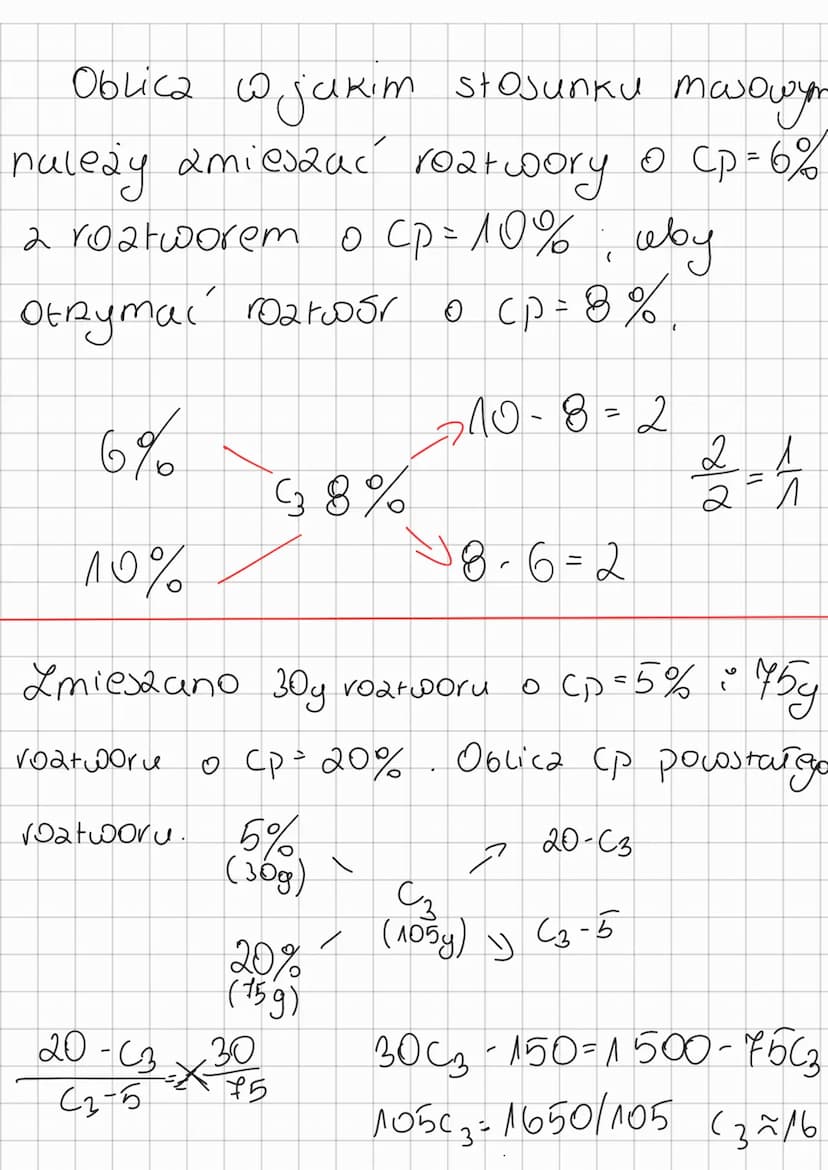 Oblicz w jakim stosunku masowym
należy zmieszać roztwory o Cp=6%
z roztworem o Cp=10%, aby
otrzymać roztwór o Cp=8%.
6%
10-8=2
C3 8%
2/2=1/1
10%
8-6=2
Zmieszano 30g roztworu o Cp=5% i 75g
roztworu o Cp=20%. Oblicz Cp powstałego
roztworu.
5%
(30g)
20-C3
C3
(105g)
C3-5
20%
(75g)
20-C3/C3-5 = 30/75
30C3-150=1500-75C3
105C3=1650/105 C3≈16